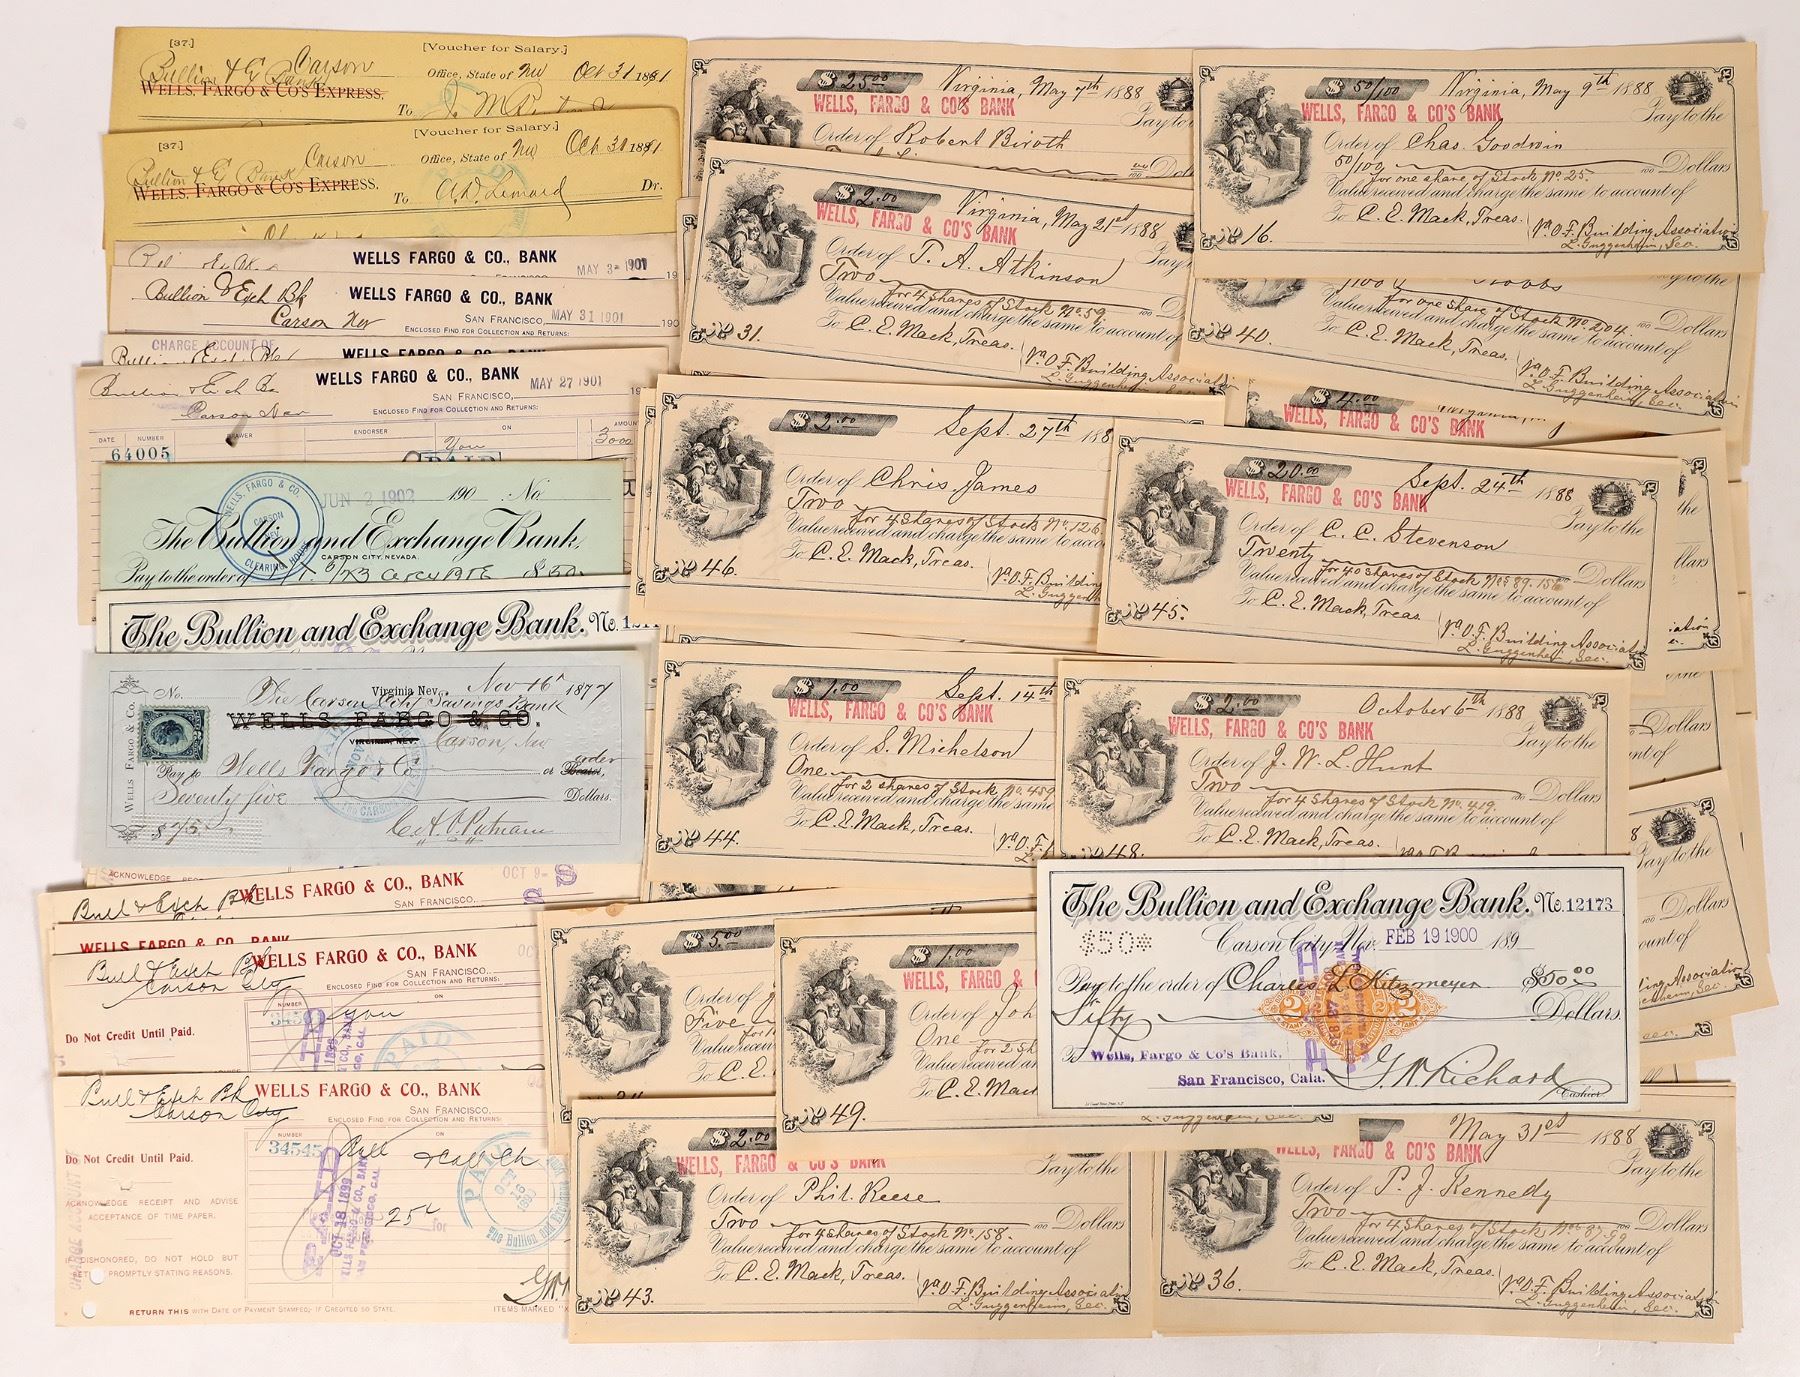 [37.] [Voucher for Salary.]
Bullion & E Bank Carson
Office, State of Nv Oct 31 1891
WELLS, FARGO & CO'S EXPRESS.
To
[Voucher for Salary.]
[37.]
Bullion & E Bank Carson
Office, State of Nv Oct 31 1891
WELLS, FARGO & CO'S EXPRESS.
To Dr.
WELLS FARGO & CO., BANK
MAY 3- 1901
Bullion & Exch Bk
Carson Nev
WELLS FARGO & CO., BANK
SAN FRANCISCO, MAY 31 1901
ENCLOSED FIND FOR COLLECTION AND RETURNS:
CHARGE ACCOUNT OF
WELLS FARGO & CO., BANK
Carson Nev
WELLS FARGO & CO., BANK MAY 27 1901
SAN FRANCISCO,
ENCLOSED FIND FOR COLLECTION AND RETURNS:
DATE NUMBER ENDORSER ON
64005 You
WELLS, FARGO & CO.
CARSON NEV.
CLEARING HOUSE
JUN 2 1902 190 No.
The Bullion and Exchange Bank,
CARSON CITY, NEVADA.
Pay to the order of
The Bullion and Exchange Bank. No.
No. Virginia Nev. Nov 16 1877
The Carson City Savings Bank
WELLS FARGO & CO.
VIRGINIA, NEV. Carson, Nev
WELLS FARGO & CO.
Pay to Wells Fargo & Co. or Bearer, order
Seventy five Dollars.
$75
ACKNOWLEDGE
Bull & Exch Bk
WELLS FARGO & CO., BANK OCT 9-
SAN FRANCISCO,
WELLS FARGO & CO., BANK
Bull & Exch Bk
Carson City
WELLS FARGO & CO., BANK
SAN FRANCISCO,
ENCLOSED FIND FOR COLLECTION AND RETURNS:
NUMBER ON
you
Do Not Credit Until Paid.
PAID
Bull & Exch Bk
Carson City
WELLS FARGO & CO., BANK
SAN FRANCISCO,
ENCLOSED FIND FOR COLLECTION AND RETURNS:
NUMBER ON
34545
Do Not Credit Until Paid.
ACKNOWLEDGE RECEIPT AND ADVISE
ACCEPTANCE OF TIME PAPER.
OCT 18 1899
PAID
IF DISHONORED, DO NOT HOLD BUT
RETURN PROMPTLY STATING REASONS.
RETURN THIS WITH DATE OF PAYMENT STAMPED; IF CREDITED SO STATE.
ITEMS MARKED "X
$25.00 Virginia, May 7th 1888
WELLS, FARGO & CO'S BANK
Order of Robert Biroth
$50/100 Virginia, May 9th 1888
WELLS, FARGO & CO'S BANK
Pay to the
Order of Chas. Goodwin
50/100 Dollars
for one share of Stock No. 25.
Value received and charge the same to account of
To C. E. Mack, Treas.
Va O. F. Building Association
No 16. L. Guggenheim, Sec.
$2.00 Virginia, May 21st 1888
WELLS, FARGO & CO'S BANK
Order of T. A. Atkinson
Two
for 4 Shares of Stock No. 59.
Value received and charge the same to account of
To C. E. Mack, Treas.
Va O. F. Building Association
No 31. L. Guggenheim, Sec.
for one share of Stock No. 204. Dollars
Value received and charge the same to account of
To C. E. Mack, Treas.
Va O. F. Building Association
No 40. L. Guggenheim, Sec.
$4.00
WELLS, FARGO & CO'S BANK
$2.00 Sept. 27th 188
Order of Chris James
Two
for 4 Shares of Stock No. 126
Value received and charge the same to acco
To C. E. Mack, Treas.
Va O. F. Building
No 46. L. Guggenh
$20.00 Sept. 24th 1888
WELLS, FARGO & CO'S BANK
Pay to the
Order of C. C. Stevenson
Twenty Dollars
for 40 Shares of Stock Nos 89. 156
Value received and charge the same to account of
To C. E. Mack, Treas.
Va O. F. Building Association
No 45. L. Guggenheim, Sec.
$1.00 Sept. 14th
WELLS, FARGO & CO'S BANK
Order of S. Michelson
One
for 2 shares of Stock No. 459
Value received and charge the sam
To C. E. Mack, Treas.
No 44.
$2.00 October 6th 1888
WELLS, FARGO & CO'S BANK
Pay to the
Order of J. W. L. Hunt
Two Dollars
for 4 Shares of Stock No. 419.
Value received and charge the same to account of
To C. E. Mack, Treas.
No 48.
$5.00
Order of
Five
Value receiv
To C. E.
$1.00
WELLS, FARGO &
Order of Joh
One
for 2 Sh
Value received and
To C. E. Mack
No 49.
The Bullion and Exchange Bank. No. 12173
$50
Carson City, Nev. FEB 19 1900 189
Pay to the order of Charles L Kitzmeyer $50.00
Fifty Dollars.
To Wells, Fargo & Co's Bank,
San Francisco, Cala.
G. W. Richard
Cashier
$2.00
WELLS, FARGO & CO'S BANK
Order of Phil. Reese
Two Dollars
for 4 Shares of Stock No. 158.
Value received and charge the same to account of
To C. E. Mack, Treas.
Va O. F. Building Association
No 43. L. Guggenheim, Sec.
May 31st 1888
WELLS, FARGO & CO'S BANK
Pay to the
Order of P. J. Kennedy
Two Dollars
for 4 Shares of Stock, Nos 87.99
Value received and charge the same to account of
To C. E. Mack, Treas.
Va O. F. Building Association
No 36. L. Guggenheim, Sec.